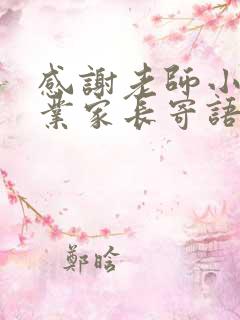 感謝老師小
業家長寄語
鄭晗